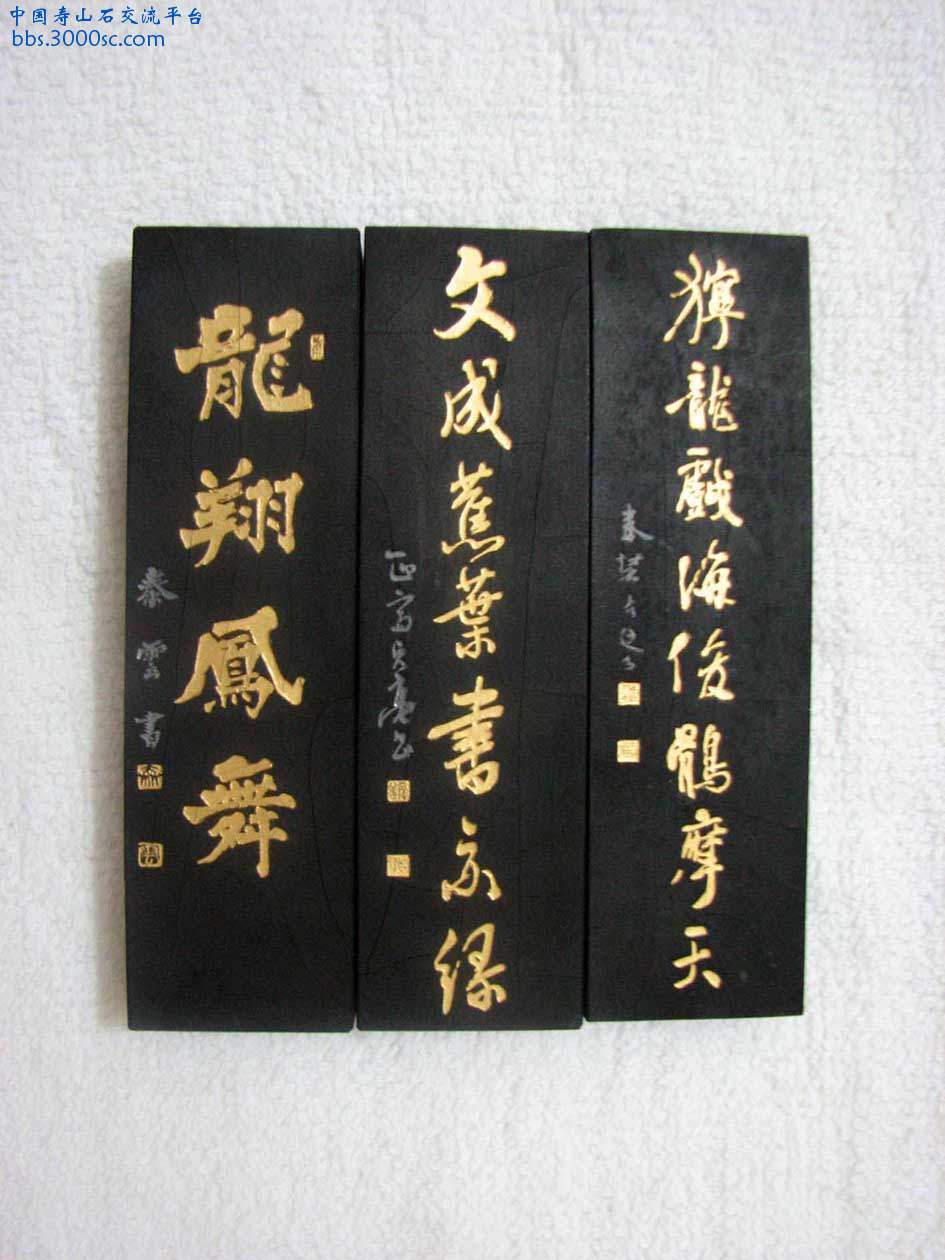 中国寿山石交流平台
bbs.3000sc.com
獰龍戲海俊鶻摩天
文成蕉葉書亦绿
龍翔鳳舞
泰雲書